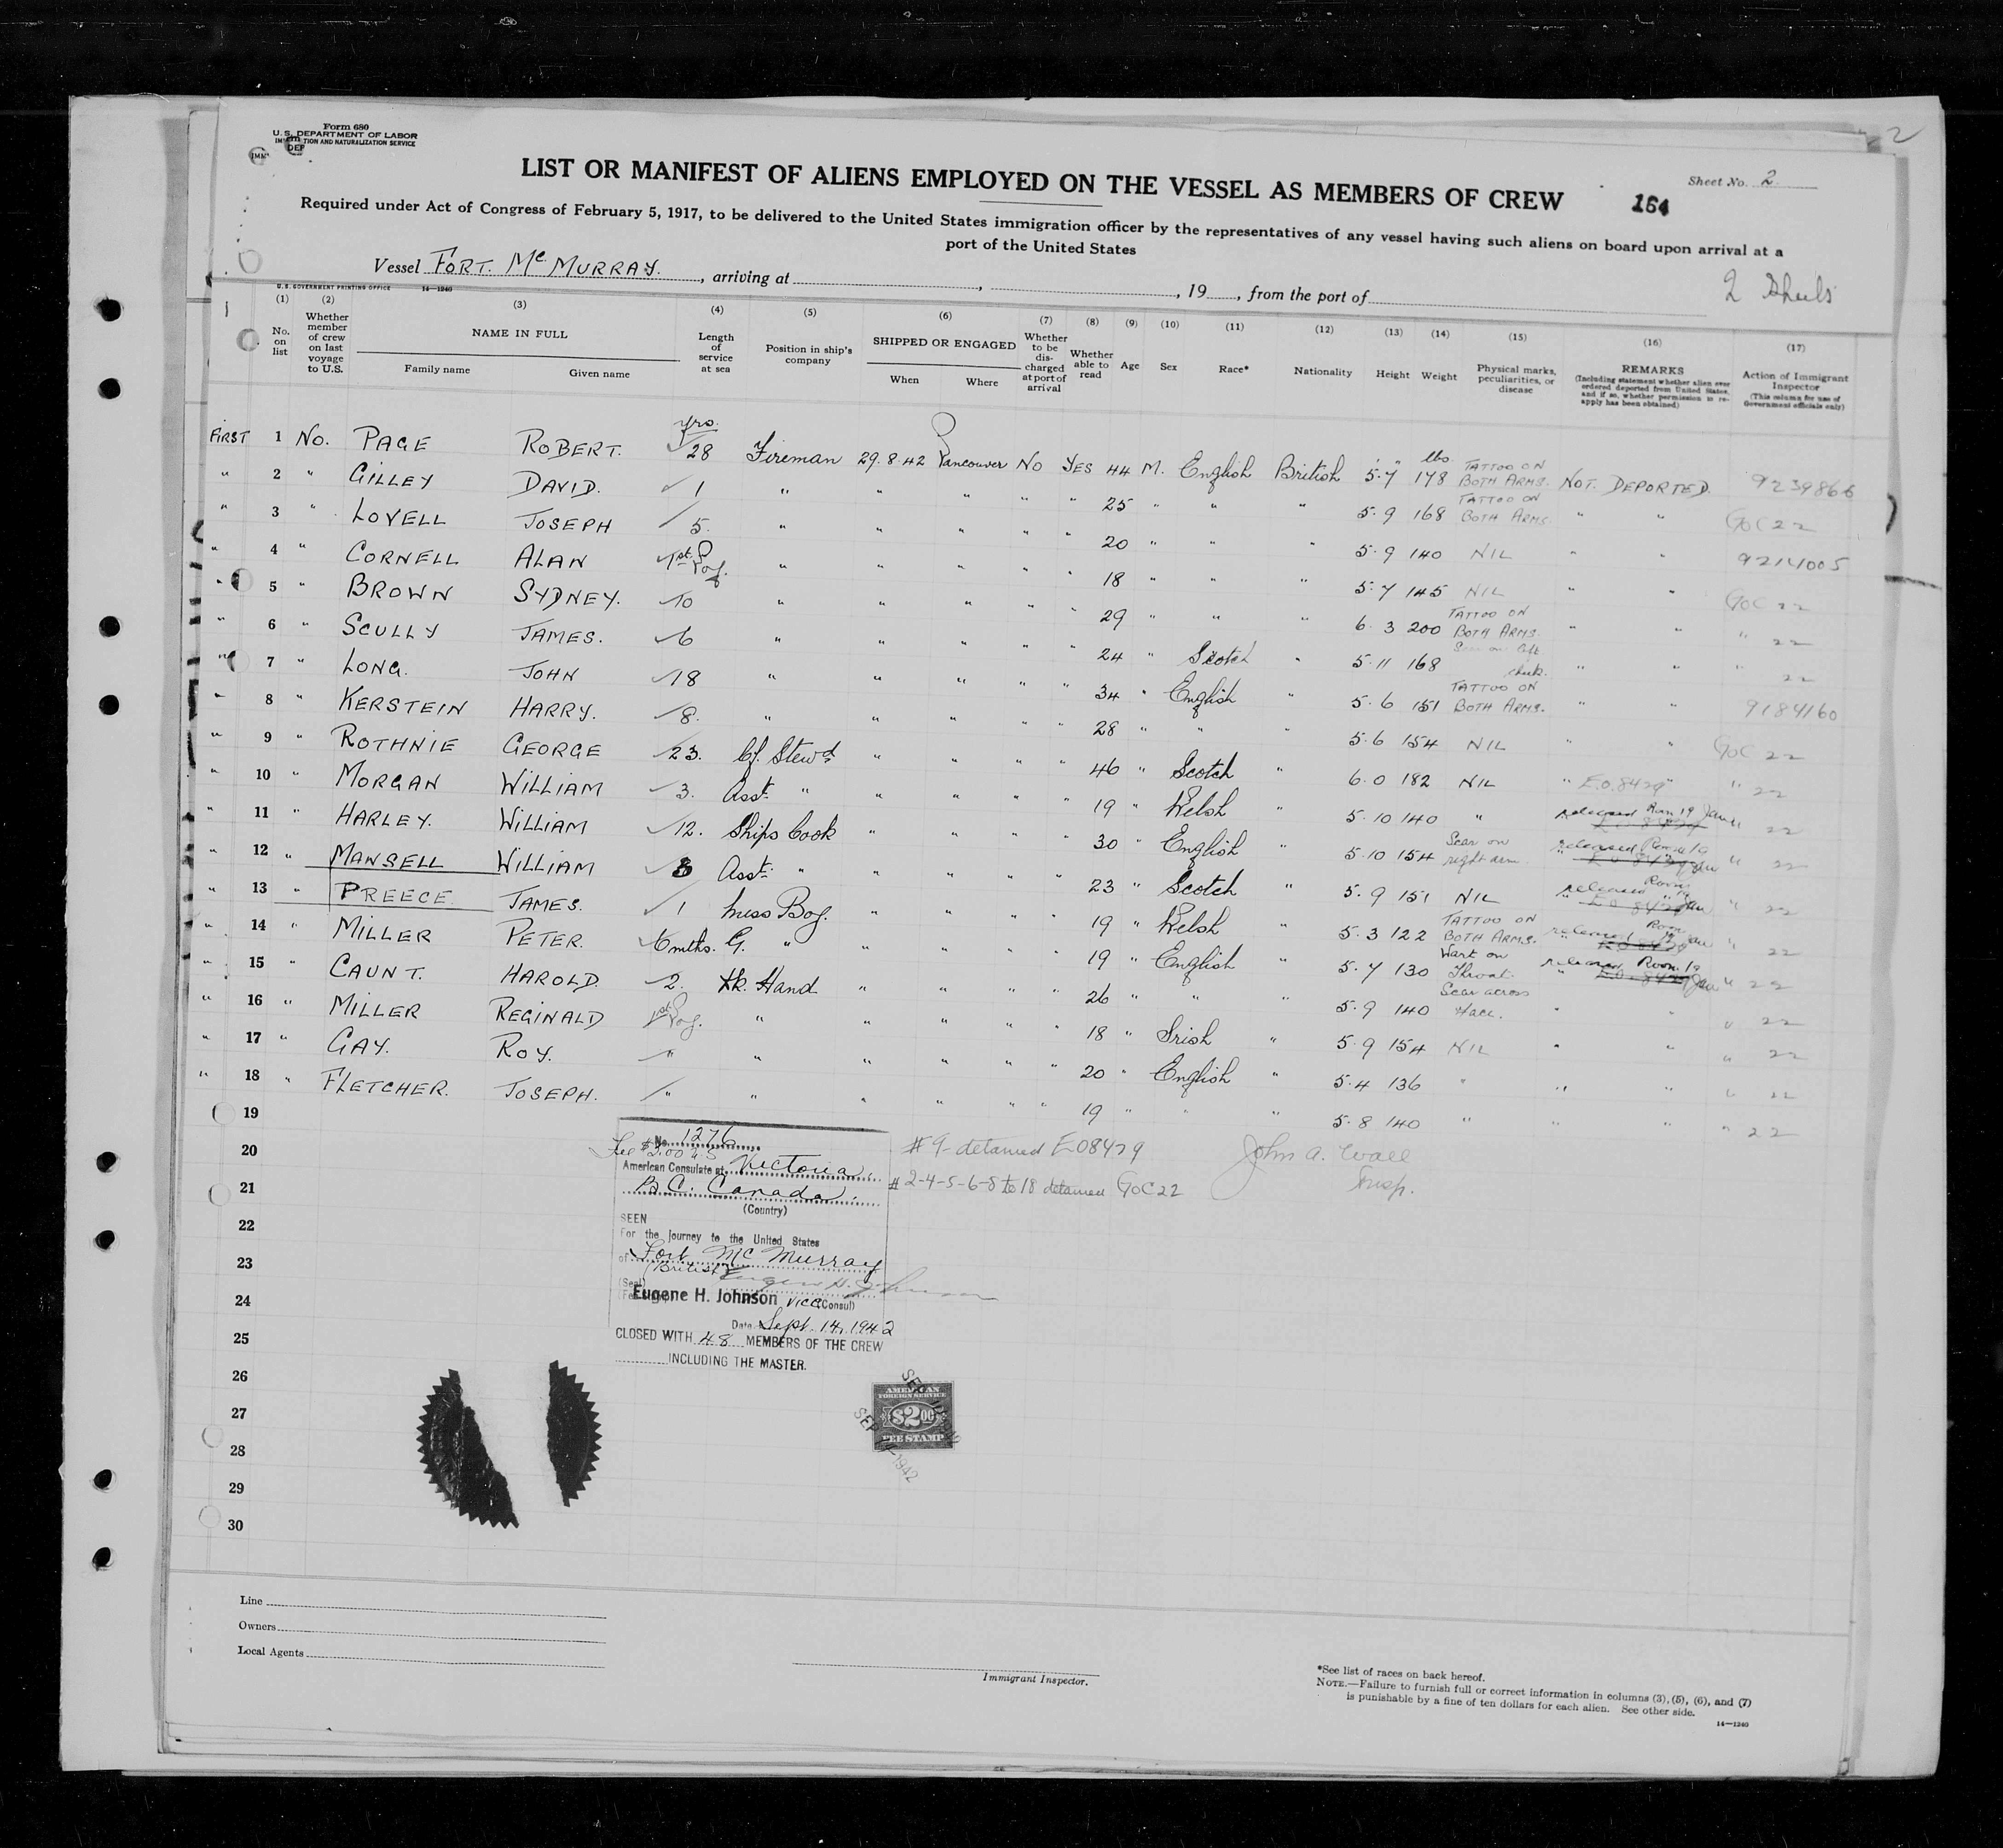 2
Form 680
U. S. DEPARTMENT OF LABOR
IMMIGRATION AND NATURALIZATION SERVICE
Sheet No. 2
LIST OR MANIFEST OF ALIENS EMPLOYED ON THE VESSEL AS MEMBERS OF CREW
164
Required under Act of Congress of February 5, 1917, to be delivered to the United States immigration officer by the representatives of any vessel having such aliens on board upon arrival at a
port of the United States
Vessel FORT. Mc MURRAY., arriving at , , 19 , from the port of
2 Sheets
U. S. GOVERNMENT PRINTING OFFICE 14—1240
(1) No. on list
(2) Whether member of crew on last voyage to U.S.
(3) NAME IN FULL Family name Given name
(4) Length of service at sea
(5) Position in ship's company
(6) SHIPPED OR ENGAGED When Where
(7) Whether to be discharged at port of arrival
(8) Whether able to read
(9) Age
(10) Sex
(11) Race*
(12) Nationality
(13) Height
(14) Weight
(15) Physical marks, peculiarities, or disease
(16) REMARKS (Including statement whether alien ever ordered deported from United States, and if so, whether permission to re-apply has been obtained)
(17) Action of Immigrant Inspector (This column for use of Government officials only)
yrs. lbs
FIRST 1 No. PAGE ROBERT. 28 Fireman 29.8.42 Vancouver No YES 44 M. English British 5.7 178 TATTOO ON BOTH ARMS. NOT DEPORTED. 9239866
" 2 " GILLEY DAVID. 1 " " " " " 25 " " " 5.9 168 TATTOO ON BOTH ARMS. " " GOC 22
" 3 " LOVELL JOSEPH 5. " " " " " 20 " " " 5.9 140 NIL " " 9214005
" 4 " CORNELL ALAN 1st Voy. " " " " " 18 " " " 5.7 145 NIL " " GOC 22
" 5 " BROWN SYDNEY. 10 " " " " " 29 " " " 6.3 200 TATTOO ON BOTH ARMS. " " " 22
" 6 " SCULLY JAMES. 6 " " " " " 24 " Scotch " 5.11 168 Scar on left cheek. " " " 22
" 7 " LONG. JOHN 18 " " " " " 34 " English " 5.6 151 TATTOO ON BOTH ARMS. " " 9184160
" 8 " KERSTEIN HARRY. 8. " " " " " 28 " " " 5.6 154 NIL " " GOC 22
" 9 " ROTHNIE GEORGE 23. Cf. Stewd " " " " 46 " Scotch " 6.0 182 NIL " E.O. 8429 " " 22
" 10 " MORGAN WILLIAM 3. Asst. " " " " " 19 " Welsh " 5.10 140 " released Rom 19 Jan " 22
" 11 " HARLEY. WILLIAM 12. Ships Cook " " " " 30 " English " 5.10 154 Scar on right arm. released " 22
" 12 " MANSELL WILLIAM 8 Asst. " " " " " 23 " Scotch " 5.9 151 NIL released " 22
" 13 " PREECE. JAMES. 1 Mess Boy. " " " " 19 " Welsh " 5.3 122 TATTOO ON BOTH ARMS. released " 22
" 14 " MILLER PETER. 6 mths. G. " " " " " 19 " English " 5.7 130 Wart on Throat. released " 22
" 15 " CAUNT. HAROLD. 2. Hand " " " " 26 " " " 5.9 140 Scar across Face. " " " 22
" 16 " MILLER REGINALD 1st Voy. " " " " " 18 " Irish " 5.9 154 NIL " " " 22
" 17 " GAY. ROY. " " " " " " 20 " English " 5.4 136 " " " " 22
" 18 " FLETCHER. JOSEPH. " " " " " " 19 " " " 5.8 140 " " " " 22
19
20
21
22
23
24
25
26
27
28
29
30
No. 1276
Fee $2.00
American Consulate at Victoria,
B.C. Canada.
(Country)
SEEN
For the journey to the United States
of Fort Mc Murray
(British)
(Seal)
Eugene H. Johnson Vice Consul)
Date Sept. 14, 1942
CLOSED WITH 48 MEMBERS OF THE CREW
INCLUDING THE MASTER.
#9 - detained EO8429
#2-4-5-6-8 to 18 detained GOC 22
John A. Wall
Insp.
AMERICAN
FOREIGN SERVICE
$2.00
FEE STAMP
SEP 14 1942
Line
Owners
Local Agents
Immigrant Inspector.
*See list of races on back hereof.
NOTE.—Failure to furnish full or correct information in columns (3), (5), (6), and (7)
is punishable by a fine of ten dollars for each alien. See other side.
14—1240